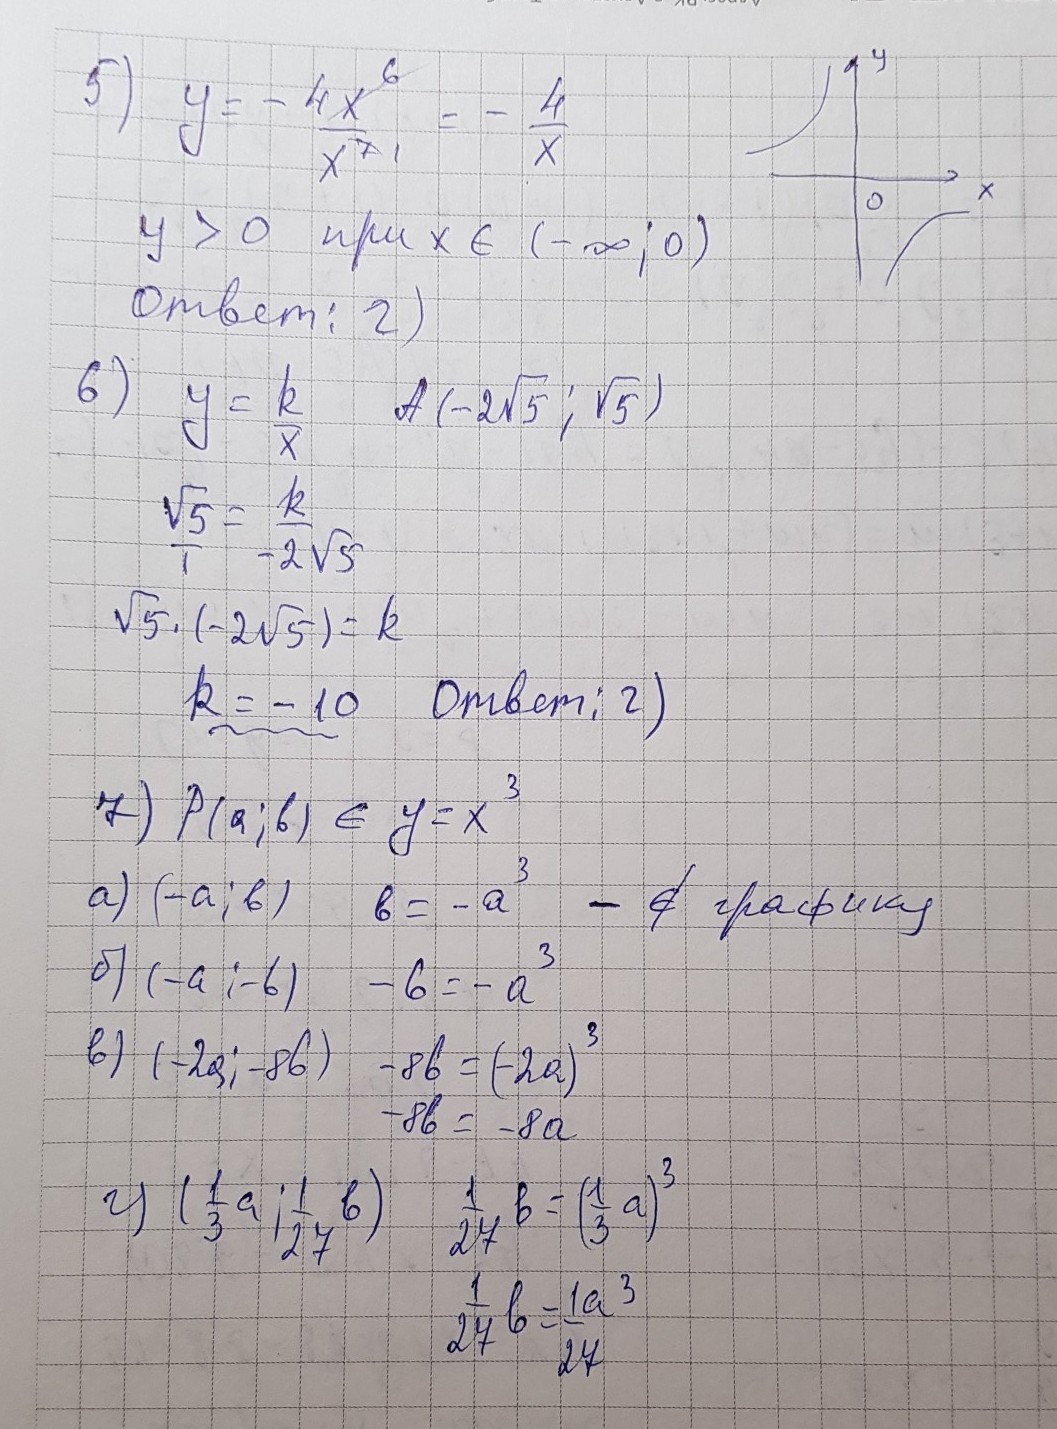 5) y = - 4x⁶/x⁷ ¹ = - 4/x
y
0 x
y > 0 при x ∈ (-∞; 0)
Ответ: г)
6) y = k/x A(-2√5; √5)
√5/1 = k/-2√5
√5 · (-2√5) = k
k = -10 Ответ: г)
7) P(a; b) ∈ y = x³
а) (-a; b) b = -a³ - ∉ графику
б) (-a; -b) -b = -a³
в) (-2a; -8b) -8b = (-2a)³
-8b = -8a
г) (1/3 a; 1/27 b) 1/27 b = (1/3 a)³
1/27 b = 1a³/27